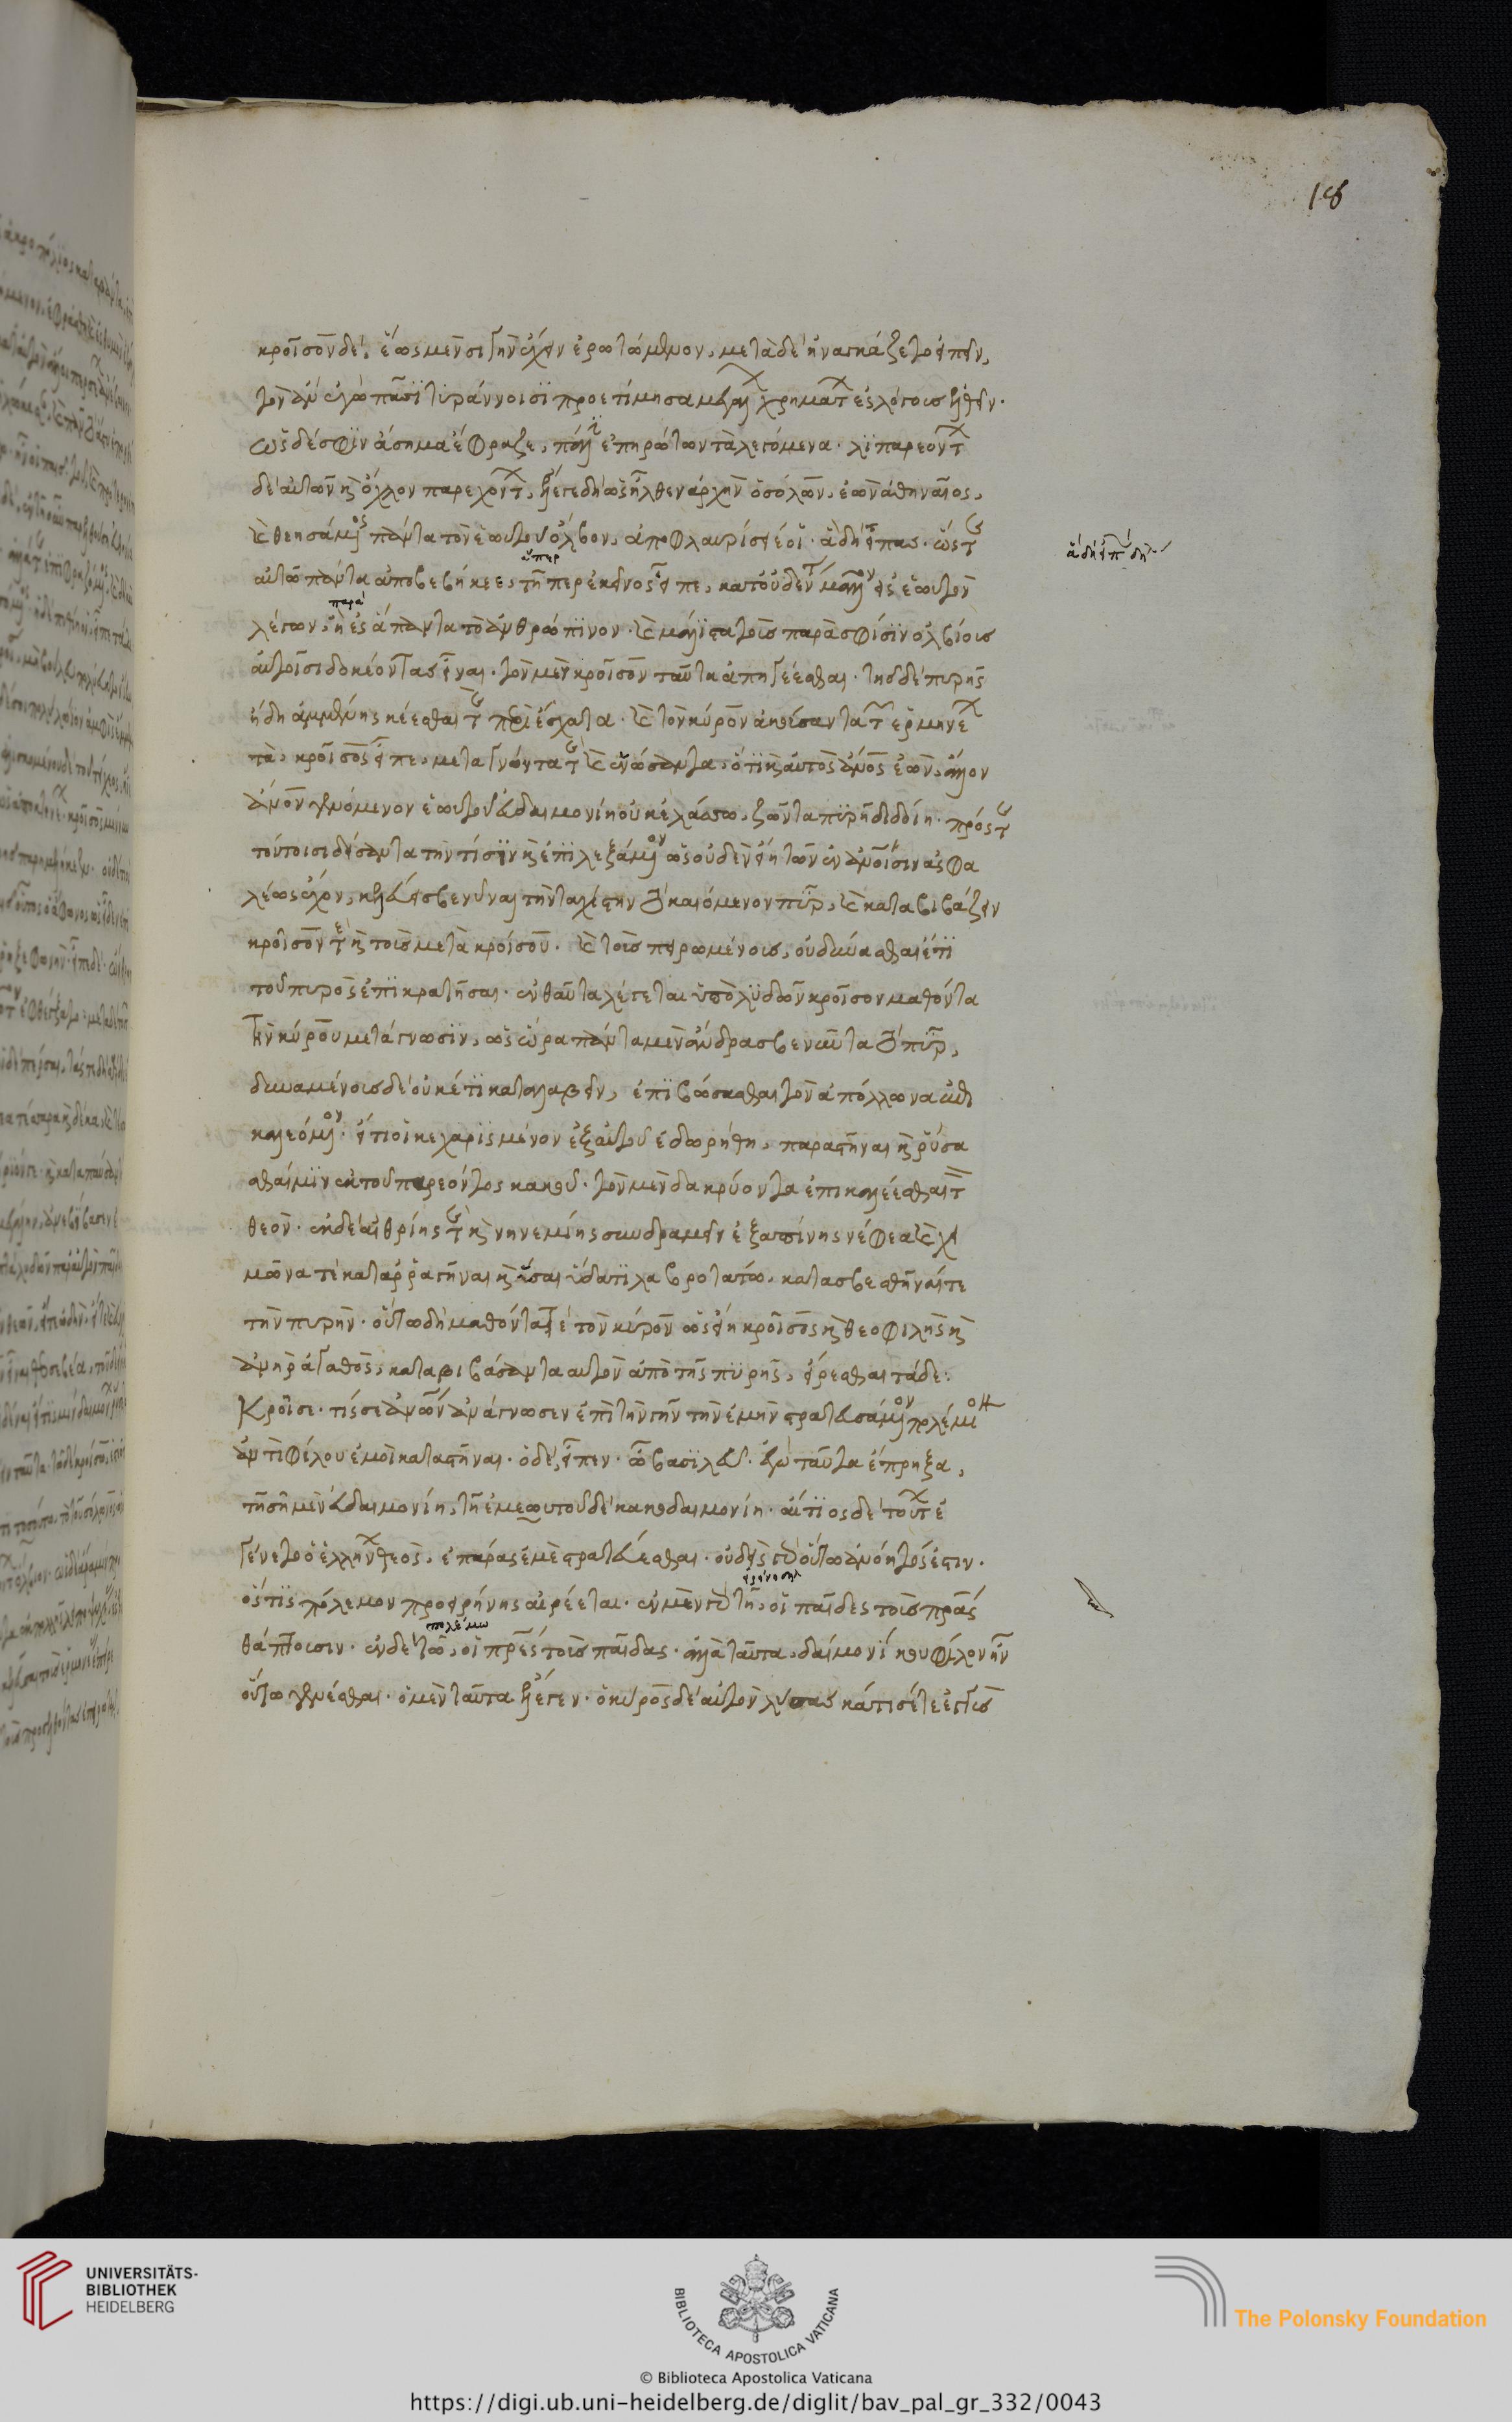 κροῖσον δὲ, ἕως μὲν σιγὴν ἔχειν ἐρωτώμενον, μετὰ δὲ ἠναγκάζετο εἰπεῖν,
τὸν ἂν ἐγὼ πᾶσϊ τϋράννοισϊ προετίμησα μεγάλων χρημάτων ἐς λόγους ἐλθεῖν·
ὡς δέ σφϊν ἄσημα ἔφραζε, πάλιν ἐπηρώτων τὰ λεγόμενα· λϊπαρεόντων
δὲ αὐτῶν καὶ ὄχλον παρεχόντων, ἔλεγε δὴ ὡς ἦλθεν ἀρχὴν ὁ σόλων, ἐὼν ἀθηναῖος,
καὶ θεησάμενος πάντα τὸν ἑωυτοῦ ὄλβον, ἀποφλαυρίσειέ οἱ· ἃ δὴ εἶπας· ὥς τε
αὐτῶ πάντα ἀποβεβήκεε, τῆ περ ἐκεῖνος εἶπε, κατ' οὐδέν τι μᾶλλον εἰς ἑωυτὸν
ἅπερ
λέγων, ἢ ἐς ἅπαντα τὸ ἀνθρώπϊνον· καὶ μάλϊστα τοῖς παρὰ σφίσϊν ὀλβίοις
παρὰ
αὐτοῖσι δοκέοντας εἶναι· τὸν μὲν κροῖσον ταῦτα ἀπηγέεσθαι· τῆς δὲ πυρῆς
ἤδη ἁμμένης κέεσθαι τὰ περιέσχατα· καὶ τὸν κῦρον ἀκούσαντα τῶν ἑρμηνέων
τὰ, κροῖσος εἶπε, μεταγνόντα τε καὶ ἐννώσαντα, ὅτϊ καὶ αὐτὸς ἄνος ἐὼν, ἄλλον
ἄνον γενόμενον ἑωυτοῦ εὐδαιμονίη οὐκ ἐλάσσω, ζῶντα πϋρῆ διδοίη· πρός τε
τούτοισι δείσαντα τὴν τίσϊν καὶ ἐπϊλεξάμενον ὡς οὐδὲν εἴη τῶν ἐν ἀνοῖσιν ἀσφα
λέως ἔχον, κελεύειν σβεννύναι τὴν ταχίστην τὸ καιόμενον πῦρ, καὶ καταβιβάζειν
κροῖσόν τε καὶ τοὺς μετὰ κροίσου· καὶ τοὺς πειρωμένους, οὐ δύνασθαι ἔτϊ
τοῦ πυρὸς ἐπϊκρατῆσαι· ἐνθαῦτα λέγεται ὑπὸ λϋδῶν κροῖσον μαθόντα
τὴν κύρου μετάγνωσϊν, ὡς ὥρα πάντα μὲν ἄνδρα σβεννῦντα τὸ πῦρ,
δυναμένους δὲ οὐκέτϊ καταλαβεῖν, ἐπϊβώσασθαι τὸν ἀπόλλωνα
καλεόμενον· εἴ τί οἱ κεχαρϊσμένον ἐξ αὐτοῦ ἐδωρήθη, παραστῆναι καὶ ῥύσα
σθαί μϊν ἐκ τοῦ παρεόντος κακοῦ· τὸν μὲν δακρύοντα ἐπικαλέεσθαι τὸν
θεόν· ἐκ δὲ αἰθρίης τε καὶ νηνεμίης συνδραμεῖν ἐξαπίνης νέφεα καὶ χει
μῶνά τε καταρραγῆναι καὶ ὗσαι ὕδατϊ λαβροτάτω, κατασβεσθῆναί τε
τὴν πυρήν· οὕτω δὴ μαθόντα τὸν κῦρον ὡς εἴη κροῖσος καὶ θεοφιλὴς καὶ
ἀνὴρ ἀγαθὸς, καταβιβάσαντα αυτὸν ἀπὸ τῆς πϋρῆς, εἴρεσθαι τάδε·
Κροῖσε· τίς σε ἀνων ἀνάγνωσεν ἐπὶ τὴν γῆν τὴν ἐμὴν στρατευσάμενον πολέμιον
ἀντὶ φίλου ἐμοὶ καταστῆναι· ὁ δὲ, εἶπεν· ὦ βασϊλεῦ· ἐγὼ ταῦτα ἔπρηξα,
τῆ σῆ μὲν εὐδαιμονίη, τῆ ἐμεωυτοῦ δὲ κακοδαιμονίη· αἴτϊος δὲ τούτων ἐ
γένετο ὁ ἑλλήνων θεὸς, ἐπάρας ἐμὲ στρατεύεσθαι· οὐδεὶς γὰρ οὕτω ἀνόητός ἐστιν·
ὅς τϊς πόλεμον πρὸ εἰρήνης αἱρέεται· ἐν μὲν γὰρ τῆ, οἱ παῖδες τοὺς πρας
εἰρήνη
θάπτουσιν· ἐν δὲ τῶ, οἱ πρες τοὺς παῖδας· ἀλλὰ ταῦτα, δαίμονί κου φίλον ἦν
πολέμω
οὕτω γενέσθαι· ὁ μὲν ταῦτα ἔλεγεν· ὁ κῦρος δὲ αὐτὸν λύσας κάτισέ τε ἐγγὺς
18
UNIVERSITÄTS-
BIBLIOTHEK
HEIDELBERG
BIBLIOTECA APOSTOLICA VATICANA
The Polonsky Foundation
© Biblioteca Apostolica Vaticana
https://digi.ub.uni-heidelberg.de/diglit/bav_pal_gr_332/0043